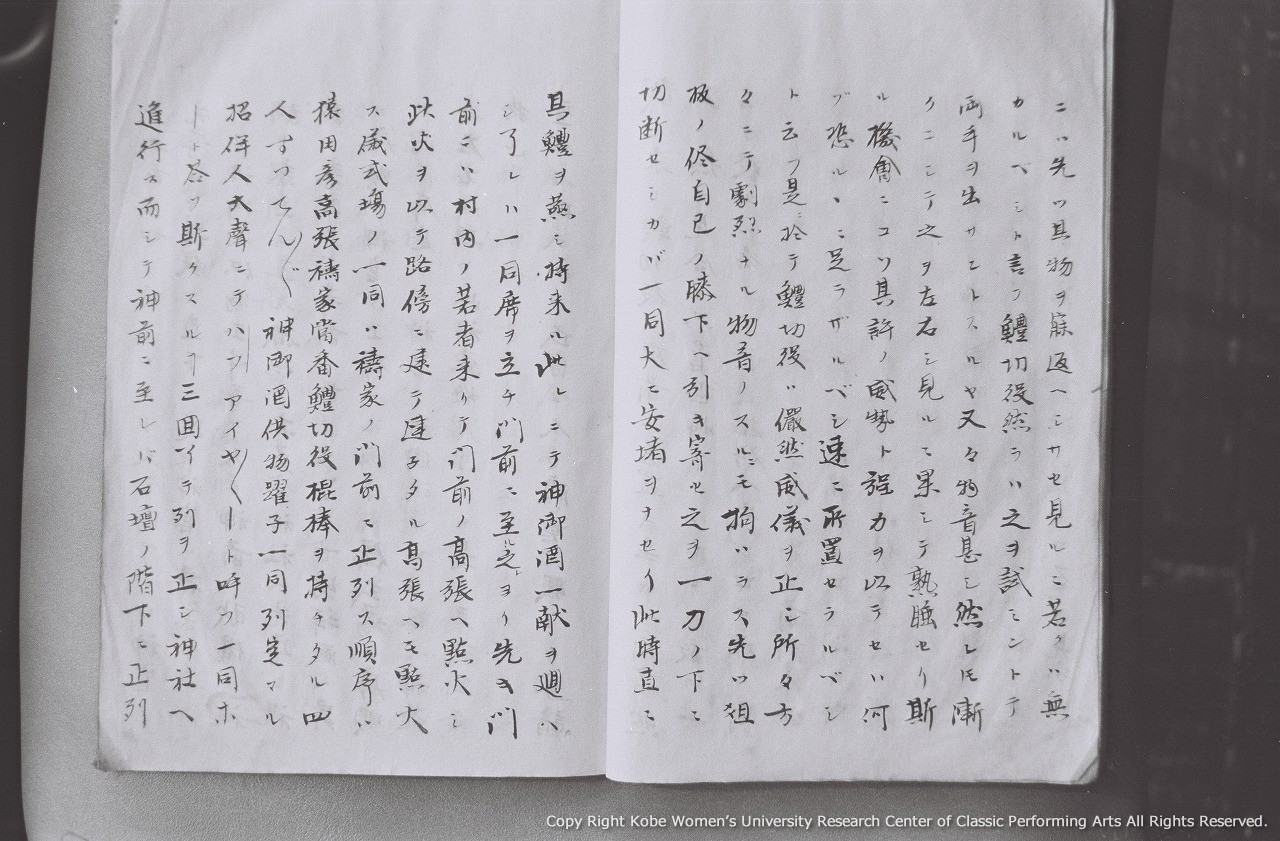 ニハ先ツ其物ヲ寐返ヘシサセ見ルニ若クハ無
カルベシト言フ鱧切役然ラハ之ヲ試ミントテ
両手ヲ出サントスルヤ又々物音甚シ然レ𪜈漸
クニシテ之ヲ左右シ見ルニ果シテ熟睡セリ斯
ル機會ニコソ其許ノ威勢ト强力ヲ以テセハ何
ゾ恐ルヽニ足ラザルベシ速ニ所置セラルベシ
ト云フ是ニ於テ鱧切役ハ儼然威儀ヲ正シ所々方
々ニテ劇烈ナル物音ノスルニモ拘ハラス先ツ俎
板ノ侭自己ノ膝下ヘ引キ寄セ之ヲ一刀ノ下ニ
切断セシカバ一同大ニ安堵ヲナセリ此時直ニ
其鱧ヲ燕シ持来ル此レニテ神御酒一献ヲ廻ハ
シ了レハ一同席ヲ立チ門前ニ至ル之ヨリ先キ門
前ニハ村内ノ若者来リテ門前ノ高張ヘ點火シ
此火ヲ以テ路傍ニ建テ連子タル高張ヘモ點火
ス儀式場ノ一同ハ祷家ノ門前ニ正列ス順序ハ
猿田彦高張祷家當番鱧切役棍棒ヲ持チタル四
人すつてん〱 神御酒供物躍子一同列定マル
招伴人大聲ニテハフアイヤ〱ート呼フ一同ホ
ート答フ斯クスルヿ三回ニテ列ヲ正シ神社ヘ
進行ス而シテ神前ニ至レバ石壇ノ階下ニ正列
Copy Right Kobe Women's University Research Center of Classic Performing Arts All Rights Reserved.